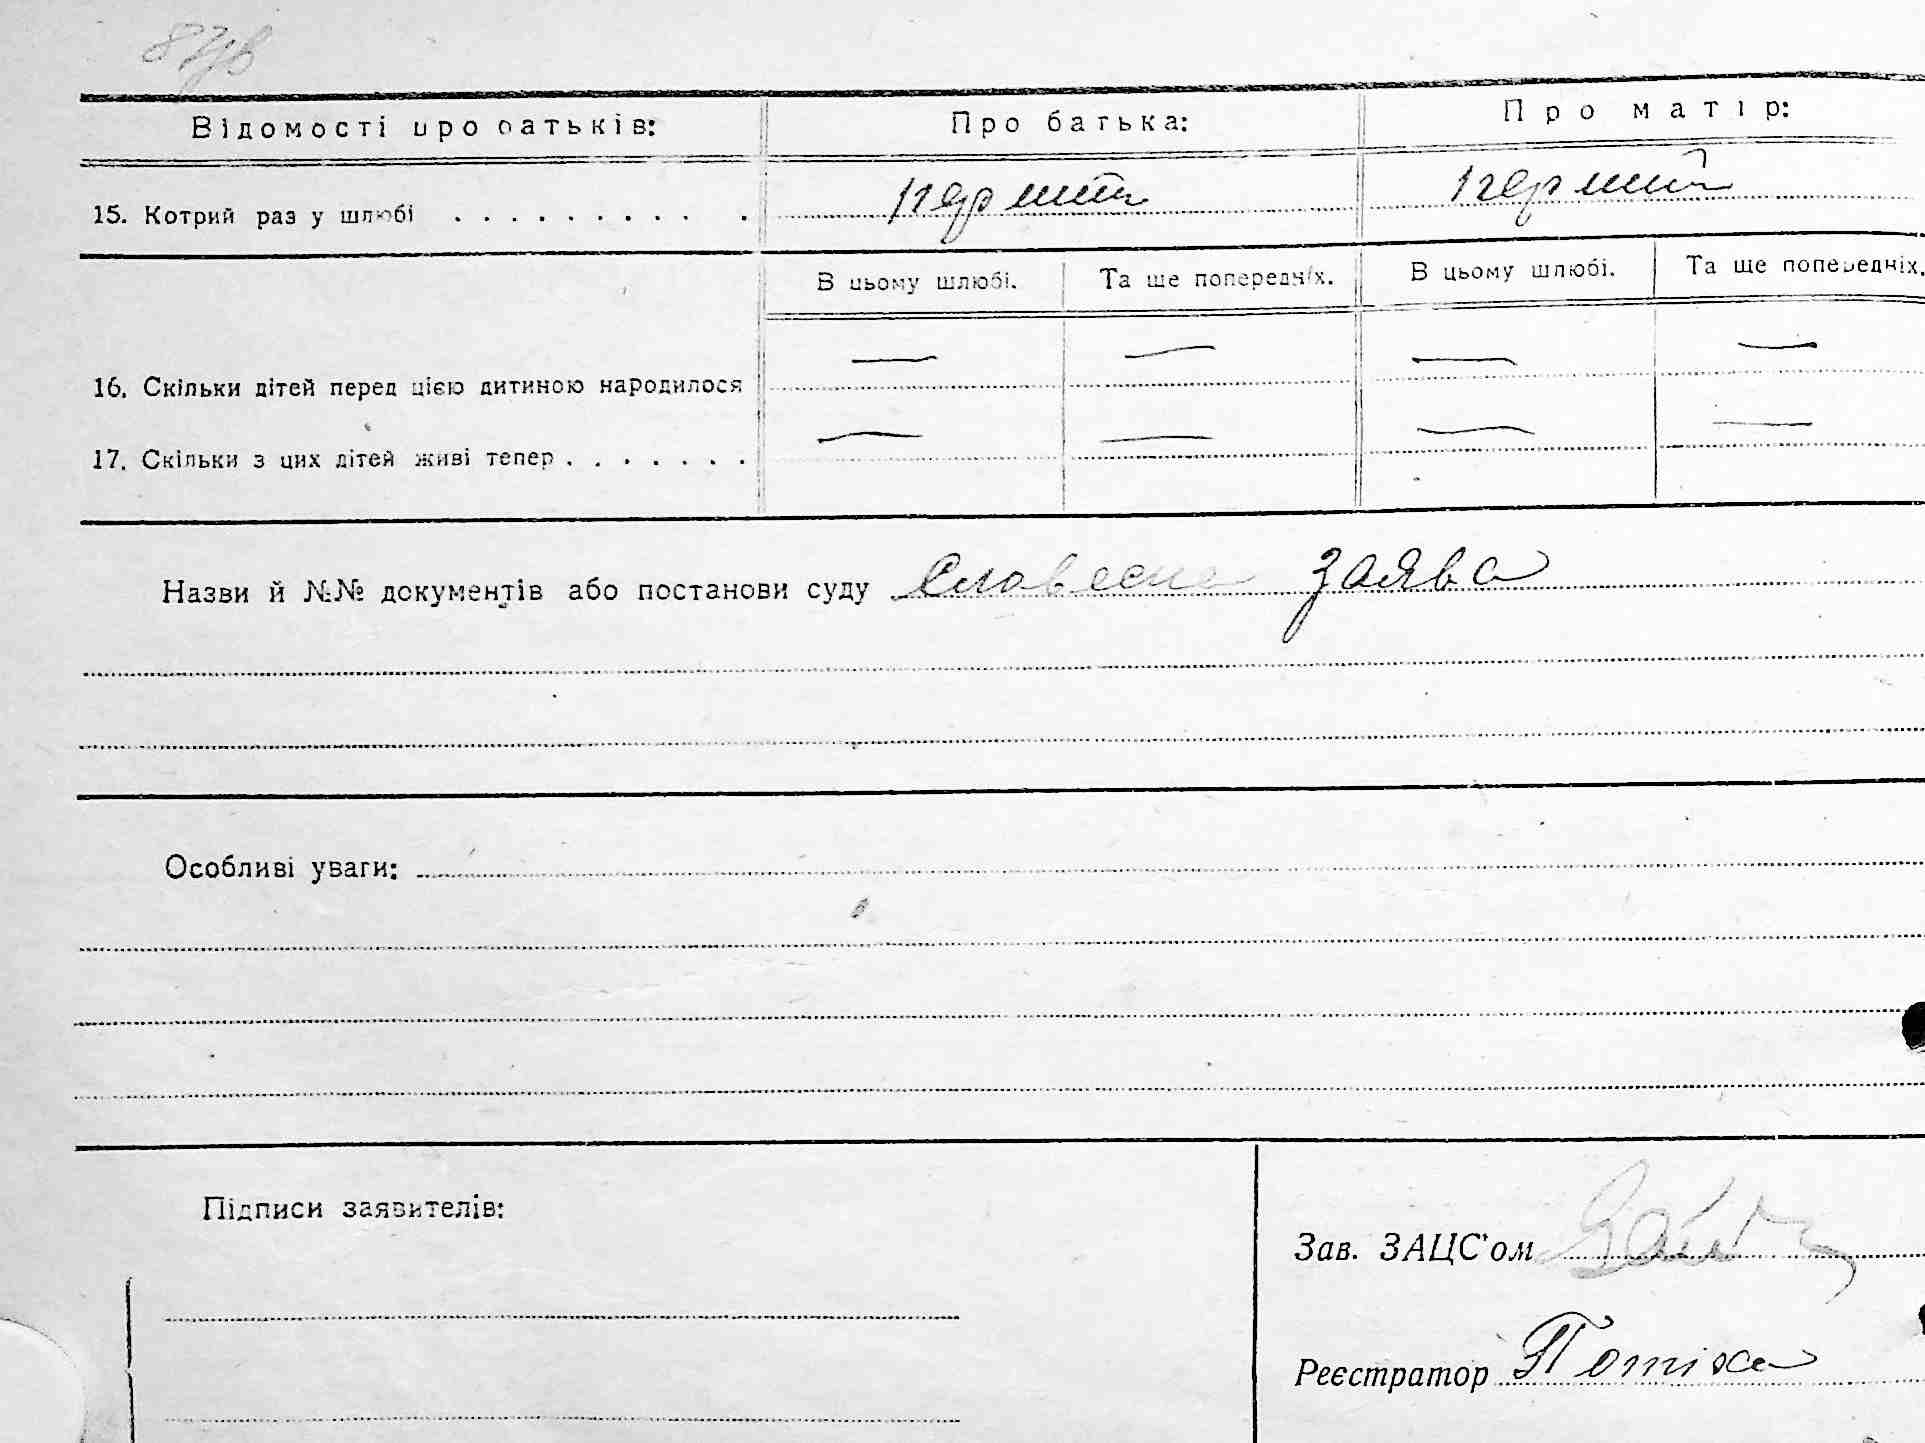 87зв
Відомості про батьків: Про батька: Про матір:
15. Котрий раз у шлюбі . . . . . . . . . . перший перший
В цьому шлюбі. Та ще попередніх. В цьому шлюбі. Та ще попередніх.
— — — —
16. Скільки дітей перед цією дитиною народилося
— — — —
17. Скільки з цих дітей живі тепер . . . . . . .
Назви й №№ документів або постанови суду Словесна заява
Особливі уваги:
Підписи заявителів:
Зав. ЗАЦС'ом
Реєстратор Потіха